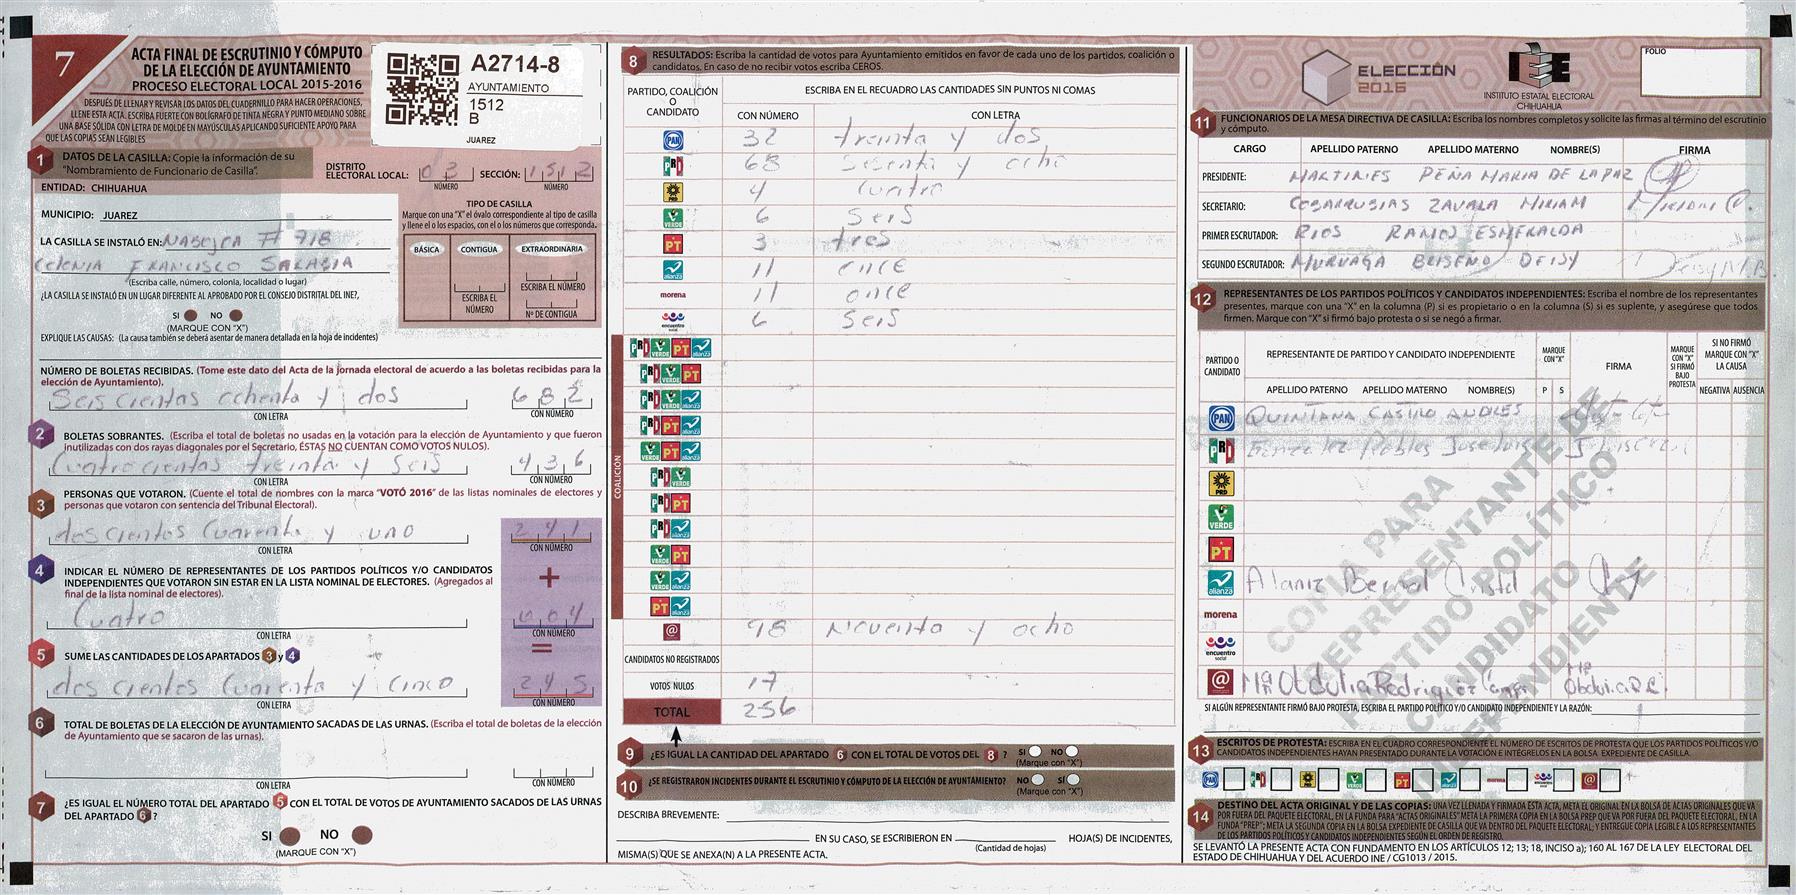 7
ACTA FINAL DE ESCRUTINIO Y CÓMPUTO
DE LA ELECCIÓN DE AYUNTAMIENTO
PROCESO ELECTORAL LOCAL 2015-2016
DESPUÉS DE LLENAR Y REVISAR LOS DATOS DEL CUADERNILLO PARA HACER OPERACIONES,
LLENE ESTA ACTA. ESCRIBA FUERTE CON BOLÍGRAFO DE TINTA NEGRA Y PUNTO MEDIANO SOBRE
UNA BASE SÓLIDA CON LETRA DE MOLDE EN MAYÚSCULAS APLICANDO SUFICIENTE APOYO PARA
QUE LAS COPIAS SEAN LEGIBLES
A2714-8
AYUNTAMIENTO
1512
B
JUAREZ
1 DATOS DE LA CASILLA: Copie la información de su
"Nombramiento de Funcionario de Casilla".
DISTRITO
ELECTORAL LOCAL: 03 SECCIÓN: 1512
NÚMERO NÚMERO
ENTIDAD: CHIHUAHUA
MUNICIPIO: JUAREZ
LA CASILLA SE INSTALÓ EN: # 718
COLONIA FRANCISCO SARABIA
(Escriba calle, número, colonia, localidad o lugar)
¿LA CASILLA SE INSTALÓ EN UN LUGAR DIFERENTE AL APROBADO POR EL CONSEJO DISTRITAL DEL INE?,
SI NO
(MARCUE CON "X")
EXPLIQUE LAS CAUSAS: (La causa también se deberá asentar de manera detallada en la hoja de incidentes)
TIPO DE CASILLA
Marque con una "X" el óvalo correspondiente al tipo de casilla
y llene el o los espacios, con el o los números que corresponda.
BÁSICA CONTIGUA EXTRAORDINARIA
ESCRIBA EL NÚMERO
ESCRIBA EL
NÚMERO
Nº DE CONTIGUA
NÚMERO DE BOLETAS RECIBIDAS. (Tome este dato del Acta de la jornada electoral de acuerdo a las boletas recibidas para la
elección de Ayuntamiento).
Seis cientas ochenta y dos 682
CON LETRA CON NÚMERO
2 BOLETAS SOBRANTES. (Escriba el total de boletas no usadas en la votación para la elección de Ayuntamiento y que fueron
inutilizadas con dos rayas diagonales por el Secretario, ÉSTAS NO CUENTAN COMO VOTOS NULOS).
Cuatro cientas treinta y seis 436
CON LETRA CON NÚMERO
3 PERSONAS QUE VOTARON. (Cuente el total de nombres con la marca "VOTÓ 2016" de las listas nominales de electores y
personas que votaron con sentencia del Tribunal Electoral).
dos cientos Cuarenta y uno 241
CON LETRA CON NÚMERO
4 INDICAR EL NÚMERO DE REPRESENTANTES DE LOS PARTIDOS POLÍTICOS Y/O CANDIDATOS
INDEPENDIENTES QUE VOTARON SIN ESTAR EN LA LISTA NOMINAL DE ELECTORES. (Agregados al
final de la lista nominal de electores).
+
Cuatro 004
CON LETRA CON NÚMERO
5 SUME LAS CANTIDADES DE LOS APARTADOS 3 y 4 =
dos cientos Cuarenta y Cinco 245
CON LETRA CON NÚMERO
6 TOTAL DE BOLETAS DE LA ELECCIÓN DE AYUNTAMIENTO SACADAS DE LAS URNAS. (Escriba el total de boletas de la elección
de Ayuntamiento que se sacaron de las urnas).
CON LETRA CON NÚMERO
7 ¿ES IGUAL EL NÚMERO TOTAL DEL APARTADO 5 CON EL TOTAL DE VOTOS DE AYUNTAMIENTO SACADOS DE LAS URNAS
DEL APARTADO 6 ?
SI NO
(MARCUE CON "X")
8 RESULTADOS: Escriba la cantidad de votos para Ayuntamiento emitidos en favor de cada uno de los partidos, coalición o
candidatos. En caso de no recibir votos escriba CEROS.
PARTIDO, COALICIÓN
O
CANDIDATO
ESCRIBA EN EL RECUADRO LAS CANTIDADES SIN PUNTOS NI COMAS
CON NÚMERO CON LETRA
PAN 32 treinta y dos
PRI 68 sesenta y ocho
PRD 4 cuatro
VERDE 6 SEIS
PT 3 tres
alianza 11 once
morena 11 once
encuentro social 6 SEIS
COALICIÓN
PRI VERDE PT alianza
PRI VERDE PT
PRI VERDE alianza
PRI PT alianza
VERDE PT alianza
PRI VERDE
PRI PT
PRI alianza
VERDE PT
VERDE alianza
PT alianza
@ 98 Noventa y ocho
CANDIDATOS NO REGISTRADOS
VOTOS NULOS 17
TOTAL 256
9 ¿ES IGUAL LA CANTIDAD DEL APARTADO 6 CON EL TOTAL DE VOTOS DEL 8 ? SI NO
(Marque con "X")
10 ¿SE REGISTRARON INCIDENTES DURANTE EL ESCRUTINIO Y CÓMPUTO DE LA ELECCIÓN DE AYUNTAMIENTO? NO SÍ
(Marque con "X")
DESCRIBA BREVEMENTE:
EN SU CASO, SE ESCRIBIERON EN HOJA(S) DE INCIDENTES,
(Cantidad de hojas)
MISMA(S) QUE SE ANEXA(N) A LA PRESENTE ACTA.
ELECCIÓN
2016
IEE
INSTITUTO ESTATAL ELECTORAL
CHIHUAHUA
FOLIO
11 FUNCIONARIOS DE LA MESA DIRECTIVA DE CASILLA: Escriba los nombres completos y solicite las firmas al término del escrutinio
y cómputo.
CARGO APELLIDO PATERNO APELLIDO MATERNO NOMBRE(S) FIRMA
PRESIDENTE: MARTINES PEÑA MARIA DE LA PAZ
SECRETARIO: COBARRUBIAS ZAVALA MIRIAM Miriam C.
PRIMER ESCRUTADOR: RIOS RAMOS ESMERALDA
SEGUNDO ESCRUTADOR: MURUAGA BRISEÑO DEISY Deisy M.B.
12 REPRESENTANTES DE LOS PARTIDOS POLÍTICOS Y CANDIDATOS INDEPENDIENTES: Escriba el nombre de los representantes
presentes, marque con una "X" en la columna (P) si es propietario o en la columna (S) si es suplente, y asegúrese que todos
firmen. Marque con "X" si firmó bajo protesta o si se negó a firmar.
PARTIDO O
CANDIDATO
REPRESENTANTE DE PARTIDO Y CANDIDATO INDEPENDIENTE
MARQUE
CON "X"
FIRMA
MARQUE
CON "X"
SI FIRMÓ
BAJO
PROTESTA
SI NO FIRMÓ
MARQUE CON "X"
LA CAUSA
APELLIDO PATERNO APELLIDO MATERNO NOMBRE(S) P S NEGATIVA AUSENCIA
PAN QUINTANA CASTRO ANDRES
PRI Robles Jose Luis
PRD
VERDE
PT
alianza Alaniz Bernal Cristel
morena
encuentro social
@ Ma Obdulia Rodriguez
COPIA PARA
REPRESENTANTE DE
PARTIDO POLÍTICO
O CANDIDATO
INDEPENDIENTE
SI ALGÚN REPRESENTANTE FIRMÓ BAJO PROTESTA, ESCRIBA EL PARTIDO POLÍTICO Y/O CANDIDATO INDEPENDIENTE Y LA RAZÓN:
13 ESCRITOS DE PROTESTA: ESCRIBA EN EL CUADRO CORRESPONDIENTE EL NÚMERO DE ESCRITOS DE PROTESTA QUE LOS PARTIDOS POLÍTICOS Y/O
CANDIDATOS INDEPENDIENTES HAYAN PRESENTADO DURANTE LA VOTACIÓN E INTÉGRELOS EN LA BOLSA EXPEDIENTE DE CASILLA.
PAN PRI PRD VERDE PT alianza morena encuentro social @
14 DESTINO DEL ACTA ORIGINAL Y DE LAS COPIAS: UNA VEZ LLENADA Y FIRMADA ESTA ACTA, META EL ORIGINAL EN LA BOLSA DE ACTAS ORIGINALES QUE VA
POR FUERA DEL PAQUETE ELECTORAL, EN LA FUNDA PARA "ACTAS ORIGINALES" META LA PRIMERA COPIA EN LA BOLSA PREP QUE VA POR FUERA DEL PAQUETE ELECTORAL, EN LA
FUNDA "PREP"; META LA SEGUNDA COPIA EN LA BOLSA EXPEDIENTE DE CASILLA QUE VA DENTRO DEL PAQUETE ELECTORAL; Y ENTREGUE COPIA LEGIBLE A LOS REPRESENTANTES
DE LOS PARTIDOS POLÍTICOS Y CANDIDATOS INDEPENDIENTES SEGÚN EL ORDEN DE REGISTRO.
SE LEVANTÓ LA PRESENTE ACTA CON FUNDAMENTO EN LOS ARTÍCULOS 12; 13; 18, INCISO a); 160 AL 167 DE LA LEY ELECTORAL DEL
ESTADO DE CHIHUAHUA Y DEL ACUERDO INE / CG1013 / 2015.